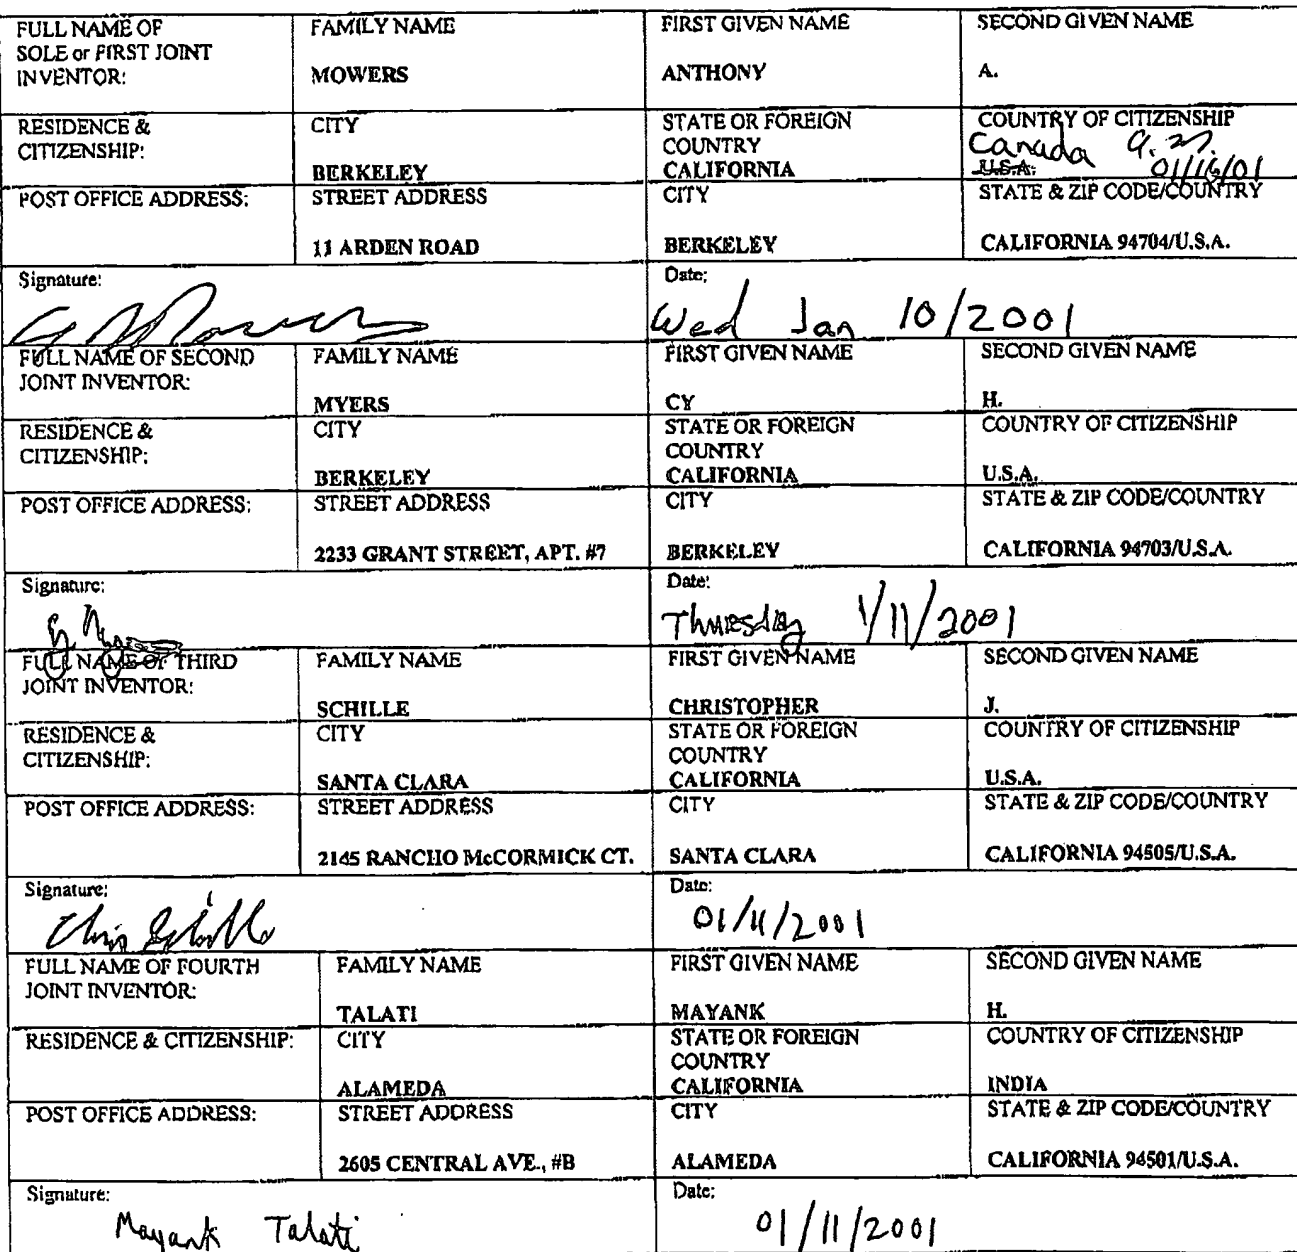 FULL NAME OF SOLE or FIRST JOINT INVENTOR: FAMILY NAME MOWERS FIRST GIVEN NAME ANTHONY SECOND GIVEN NAME A.
RESIDENCE & CITIZENSHIP: CITY BERKELEY STATE OR FOREIGN COUNTRY CALIFORNIA COUNTRY OF CITIZENSHIP Canada U.S.A. a.m. 01/16/01
POST OFFICE ADDRESS: STREET ADDRESS 11 ARDEN ROAD CITY BERKELEY STATE & ZIP CODE/COUNTRY CALIFORNIA 94704/U.S.A.
Signature: Date: Wed Jan 10/2001
FULL NAME OF SECOND JOINT INVENTOR: FAMILY NAME MYERS FIRST GIVEN NAME CY SECOND GIVEN NAME H.
RESIDENCE & CITIZENSHIP: CITY BERKELEY STATE OR FOREIGN COUNTRY CALIFORNIA COUNTRY OF CITIZENSHIP U.S.A.
POST OFFICE ADDRESS: STREET ADDRESS 2233 GRANT STREET, APT. #7 CITY BERKELEY STATE & ZIP CODE/COUNTRY CALIFORNIA 94703/U.S.A.
Signature: Date: Thursday 1/11/2001
FULL NAME OF THIRD JOINT INVENTOR: FAMILY NAME SCHILLE FIRST GIVEN NAME CHRISTOPHER SECOND GIVEN NAME J.
RESIDENCE & CITIZENSHIP: CITY SANTA CLARA STATE OR FOREIGN COUNTRY CALIFORNIA COUNTRY OF CITIZENSHIP U.S.A.
POST OFFICE ADDRESS: STREET ADDRESS 2145 RANCHO McCORMICK CT. CITY SANTA CLARA STATE & ZIP CODE/COUNTRY CALIFORNIA 94505/U.S.A.
Signature: Chris Schille Date: 01/11/2001
FULL NAME OF FOURTH JOINT INVENTOR: FAMILY NAME TALATI FIRST GIVEN NAME MAYANK SECOND GIVEN NAME H.
RESIDENCE & CITIZENSHIP: CITY ALAMEDA STATE OR FOREIGN COUNTRY CALIFORNIA COUNTRY OF CITIZENSHIP INDIA
POST OFFICE ADDRESS: STREET ADDRESS 2605 CENTRAL AVE., #B CITY ALAMEDA STATE & ZIP CODE/COUNTRY CALIFORNIA 94501/U.S.A.
Signature: Mayank Talati Date: 01/11/2001